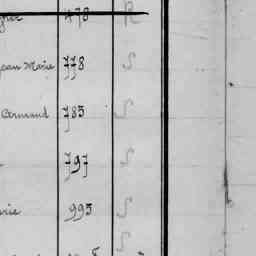 478 R
Jean Marie 778 S
Armand 785 S
797 S
995 S
S